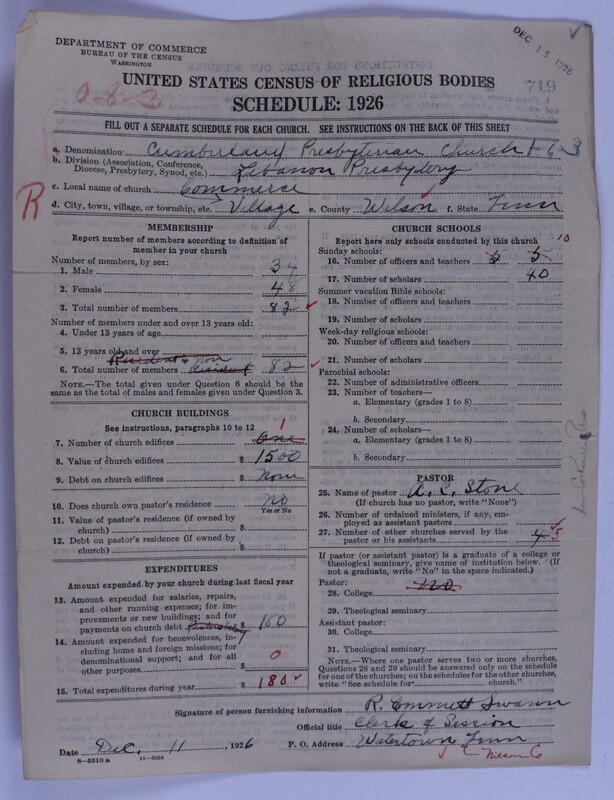 DEC 15 1926
DEPARTMENT OF COMMERCE
BUREAU OF THE CENSUS
WASHINGTON
0-8-3
719
UNITED STATES CENSUS OF RELIGIOUS BODIES
SCHEDULE: 1926
FILL OUT A SEPARATE SCHEDULE FOR EACH CHURCH. SEE INSTRUCTIONS ON THE BACK OF THIS SHEET
a. Denomination Cumberland Presbyterian Church 1-6-3
b. Division (Association, Conference, Diocese, Presbytery, Synod, etc.) Lebanon Presbytery
c. Local name of church Commerce
R
d. City, town, village, or township, etc. Village e. County Wilson f. State Tenn
MEMBERSHIP
Report number of members according to definition of member in your church
Number of members, by sex:
1. Male 34
2. Female 48
3. Total number of members 82
Number of members under and over 13 years old:
4. Under 13 years of age
5. 13 years old and over
Resident & non
6. Total number of members Resident 82
NOTE.—The total given under Question 6 should be the same as the total of males and females given under Question 3.
CHURCH BUILDINGS
See instructions, paragraphs 10 to 12
1
7. Number of church edifices One
8. Value of church edifices $ 1500
9. Debt on church edifices $ None
10. Does church own pastor's residence? No
Yes or No
11. Value of pastor's residence (if owned by church) $
12. Debt on pastor's residence (if owned by church) $
EXPENDITURES
Amount expended by your church during last fiscal year
13. Amount expended for salaries, repairs, and other running expenses; for improvements or new buildings; and for payments on church debt $ 180
14. Amount expended for benevolences, including home and foreign missions; for denominational support; and for all other purposes $ 0
15. Total expenditures during year $ 180
CHURCH SCHOOLS
Report here only schools conducted by this church
10
Sunday schools:
16. Number of officers and teachers 5 5
17. Number of scholars 40
Summer vacation Bible schools:
18. Number of officers and teachers
19. Number of scholars
Week-day religious schools:
20. Number of officers and teachers
21. Number of scholars
Parochial schools:
22. Number of administrative officers
23. Number of teachers—
a. Elementary (grades 1 to 8)
b. Secondary
24. Number of scholars—
a. Elementary (grades 1 to 8)
b. Secondary
PASTOR
25. Name of pastor A. C. Stone
(If church has no pastor, write "None")
26. Number of ordained ministers, if any, employed as assistant pastors
27. Number of other churches served by the pastor or his assistants 4 5
If pastor (or assistant pastor) is a graduate of a college or theological seminary, give name of institution below. (If not a graduate, write "No" in the space indicated.)
Pastor:
28. College No
29. Theological seminary
Assistant pastor:
30. College
31. Theological seminary
NOTE.—Where one pastor serves two or more churches, Questions 28 and 29 should be answered only on the schedule for one of the churches; on the schedules for the other churches, write "See schedule for church."
Signature of person furnishing information R. Emmett Swann
Official title Clerk of Session
Date Dec. 11, 1926 P. O. Address Watertown Tenn
Wilson Co
8-5513a
11-9054